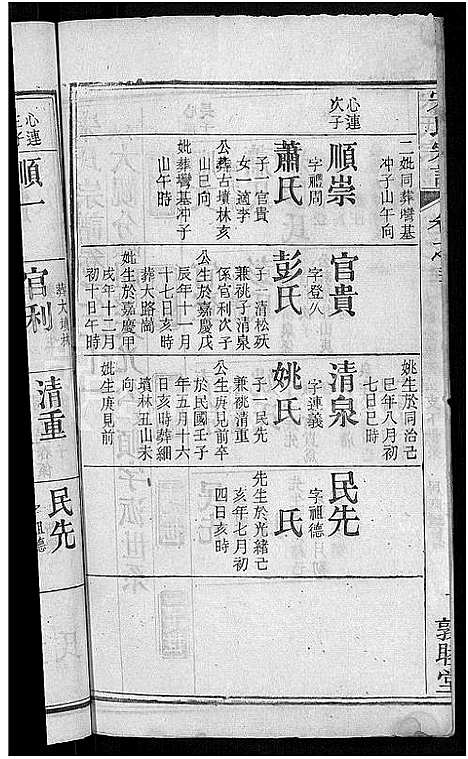 二妣同葬灣基
冲子山午向
心連
次子
順崇
字禮周
蕭氏
子一官貴
女一適李
公葬古墳林亥
山巳向
妣葬灣基冲子
山午時
官貴
字登久
彭氏
子一清松殀
兼祧子清泉
係官利次子
公生於嘉慶戊
辰年十一月
十七日亥時
葬大路崗
妣生於嘉慶甲
戌年十二月
初十日午時
姚生於同治己
巳年八月初
七日巳時
清泉
字連義
姚氏
子一民先
兼祧清重
公生庚見前卒
於民國壬子
年五月十六
日亥時葬細
墳林丑山未
向
妣生庚見前
民先
字祖德
氏
先生於光緒己
亥年七月初
四日亥時
敦睦堂
心連
三子
順一
官利
清重
民先
字祖德